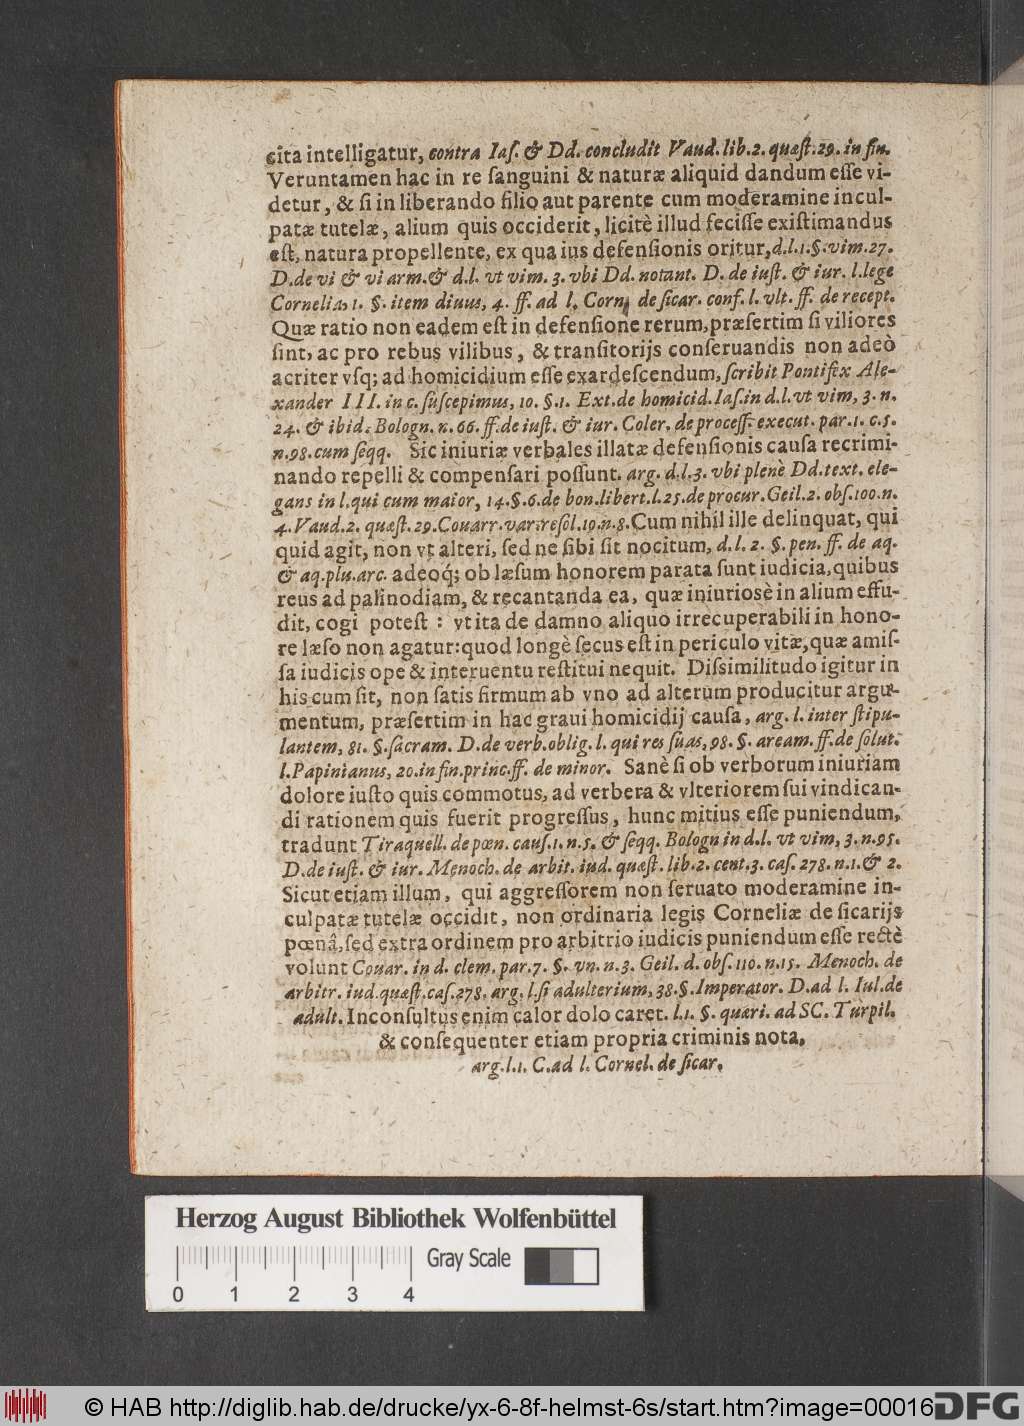 cita intelligatur, contra Iaſ. & Dd. concludit Vaud. lib. 2. quæſt. 29. in fin.
Veruntamen hac in re ſanguini & naturæ aliquid dandum eſſe vi-
detur, & ſi in liberando filio aut parente cum moderamine incul-
patæ tutelæ, alium quis occiderit, licitè illud feciſſe exiſtimandus
eſt, natura propellente, ex qua ius defenſionis oritur, d.l.1.§.vim.27.
D. de vi & vi arm. & d.l. vt vim. 3. vbi Dd. notant. D. de iuſt. & iur. l. lege
Cornelia, 1. §. item diuus, 4. ff. ad l. Corn, de ſicar. conf. l. vlt. ff. de recept.
Quæ ratio non eadem eſt in defenſione rerum, præſertim ſi viliores
ſint, ac pro rebus vilibus, & tranſitorijs conſeruandis non adeò
acriter vſq; ad homicidium eſſe exardeſcendum, ſcribit Pontifex Ale-
xander III. in c. ſuſcepimus, 10. §.1. Ext. de homicid. Iaſ. in d.l. vt vim, 3. n.
24. & ibid. Bologn. n. 66. ff. de iuſt. & iur. Coler. de proceſſ. execut. par.1. c.5.
n.98. cum ſeqq. Sic iniuriæ verbales illatæ defenſionis cauſa recrimi-
nando repelli & compenſari poſſunt. arg. d.l.3. vbi plenè Dd. text. ele-
gans in l. qui cum maior, 14.§.6. de bon. libert. l.25. de procur. Geil.2. obſ.100.n.
4. Vaud.2. quæſt. 29. Couarr. var. reſol.10.n.8. Cum nihil ille delinquat, qui
quid agit, non vt alteri, ſed ne ſibi ſit nocitum, d.l. 2. §. pen. ff. de aq.
& aq. plu. arc. adeoq́; ob læſum honorem parata ſunt iudicia, quibus
reus ad palinodiam, & recantanda ea, quæ iniuriosè in alium effu-
dit, cogi poteſt : vt ita de damno aliquo irrecuperabili in hono-
re læſo non agatur: quod longè ſecus eſt in periculo vitæ, quæ amiſ-
ſa iudicis ope & interuentu reſtitui nequit. Diſſimilitudo igitur in
his cum ſit, non ſatis firmum ab vno ad alterum producitur argu-
mentum, præſertim in hac graui homicidij cauſa, arg. l. inter ſtipu-
lantem, 81. §. ſacram. D. de verb. oblig. l. qui res ſuas, 98. §. aream. ff. de ſolut.
l. Papinianus, 20. in fin. princ. ff. de minor. Sanè ſi ob verborum iniuriam
dolore iuſto quis commotus, ad verbera & vlteriorem ſui vindican-
di rationem quis fuerit progreſſus, hunc mitius eſſe puniendum,
tradunt Tiraquell. de pœn. cauſ.1. n.5. & ſeqq. Bologn in d.l. vt vim, 3. n.95.
D. de iuſt. & iur. Menoch. de arbit. iud. quæſt. lib.2. cent.3. caſ. 278. n.1. & 2.
Sicut etiam illum, qui aggreſſorem non ſeruato moderamine in-
culpatæ tutelæ occidit, non ordinaria legis Corneliæ de ſicarijs
pœnâ, ſed extra ordinem pro arbitrio iudicis puniendum eſſe rectè
volunt Couar. in d. clem. par.7. §. vn. n.3. Geil. d. obſ. 110. n.15. Menoch. de
arbitr. iud. quæſt. caſ. 278. arg. l. ſi adulterium, 38.§. Imperator. D. ad l. Iul. de
adult. Inconſultus enim calor dolo caret. l.1. §. quæri. ad SC. Turpil.
& conſequenter etiam propria criminis nota,
arg. l.1. C. ad l. Cornel. de ſicar.
Herzog August Bibliothek Wolfenbüttel
Gray Scale
0 1 2 3 4
© HAB http://diglib.hab.de/drucke/yx-6-8f-helmst-6s/start.htm?image=00016
DFG